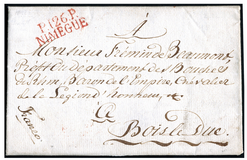 P.126.P.
NIMÈGUE
A
Monsieur Frémin de Beaumont,
Préfet du département des Bouches
du Rhin, Baron de l'Empire, Chevalier
de la Légion d'honneur, &
A
Bois le Duc.
franco